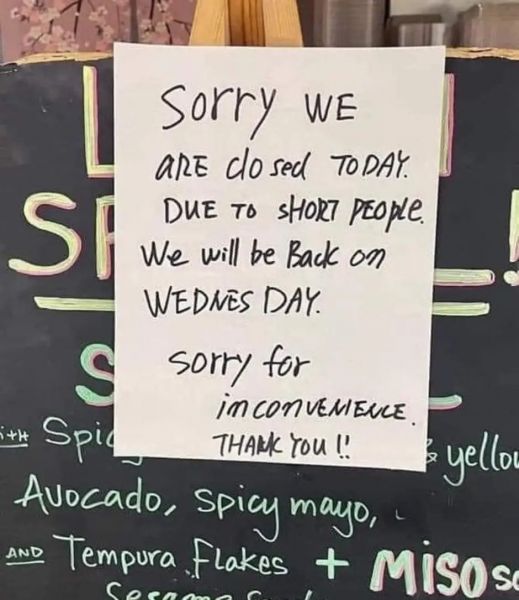 Sorry WE
ARE closed TODAY.
DUE TO SHORT PEOPLE.
We will be Back on
WEDNESDAY.
Sorry for
inconvENIENCE.
THANK YOU !!
& yellow
Avocado, spicy mayo,
AND Tempura Flakes + MISO